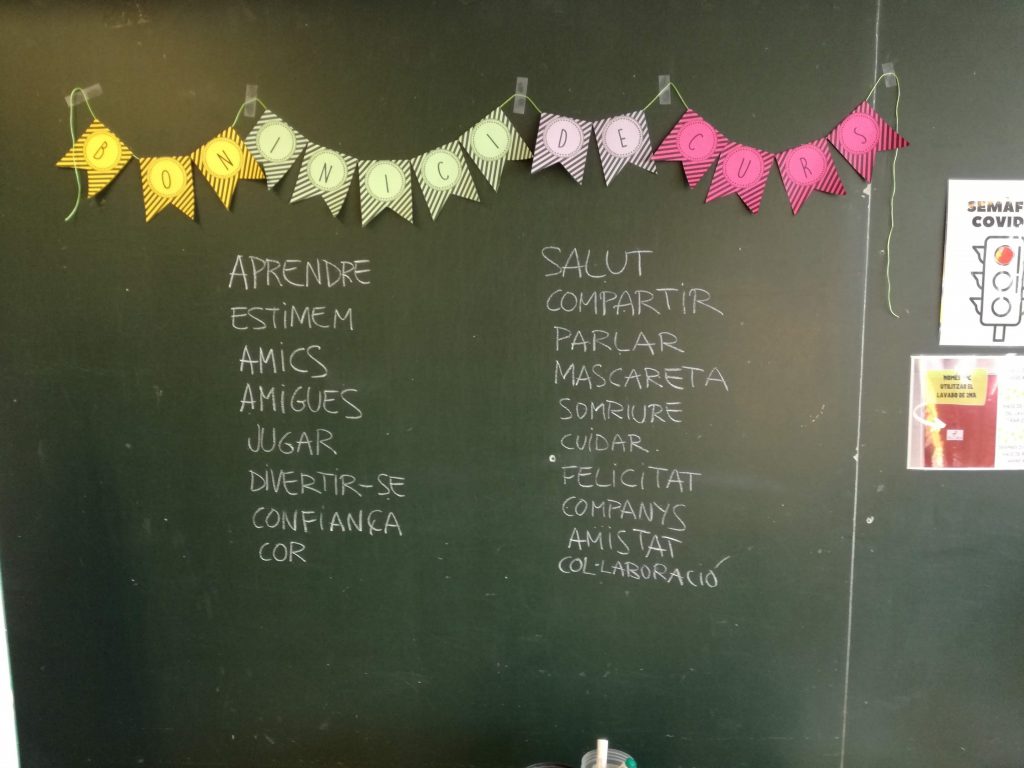 BON INICI DE CURS
APRENDRE
ESTIMEM
AMICS
AMIGUES
JUGAR
DIVERTIR-SE
CONFIANÇA
COR
SALUT
COMPARTIR
PARLAR
MASCARETA
SOMRIURE
CUIDAR
FELICITAT
COMPANYS
AMISTAT
COL·LABORACIÓ
COVID
UTILITZAR EL